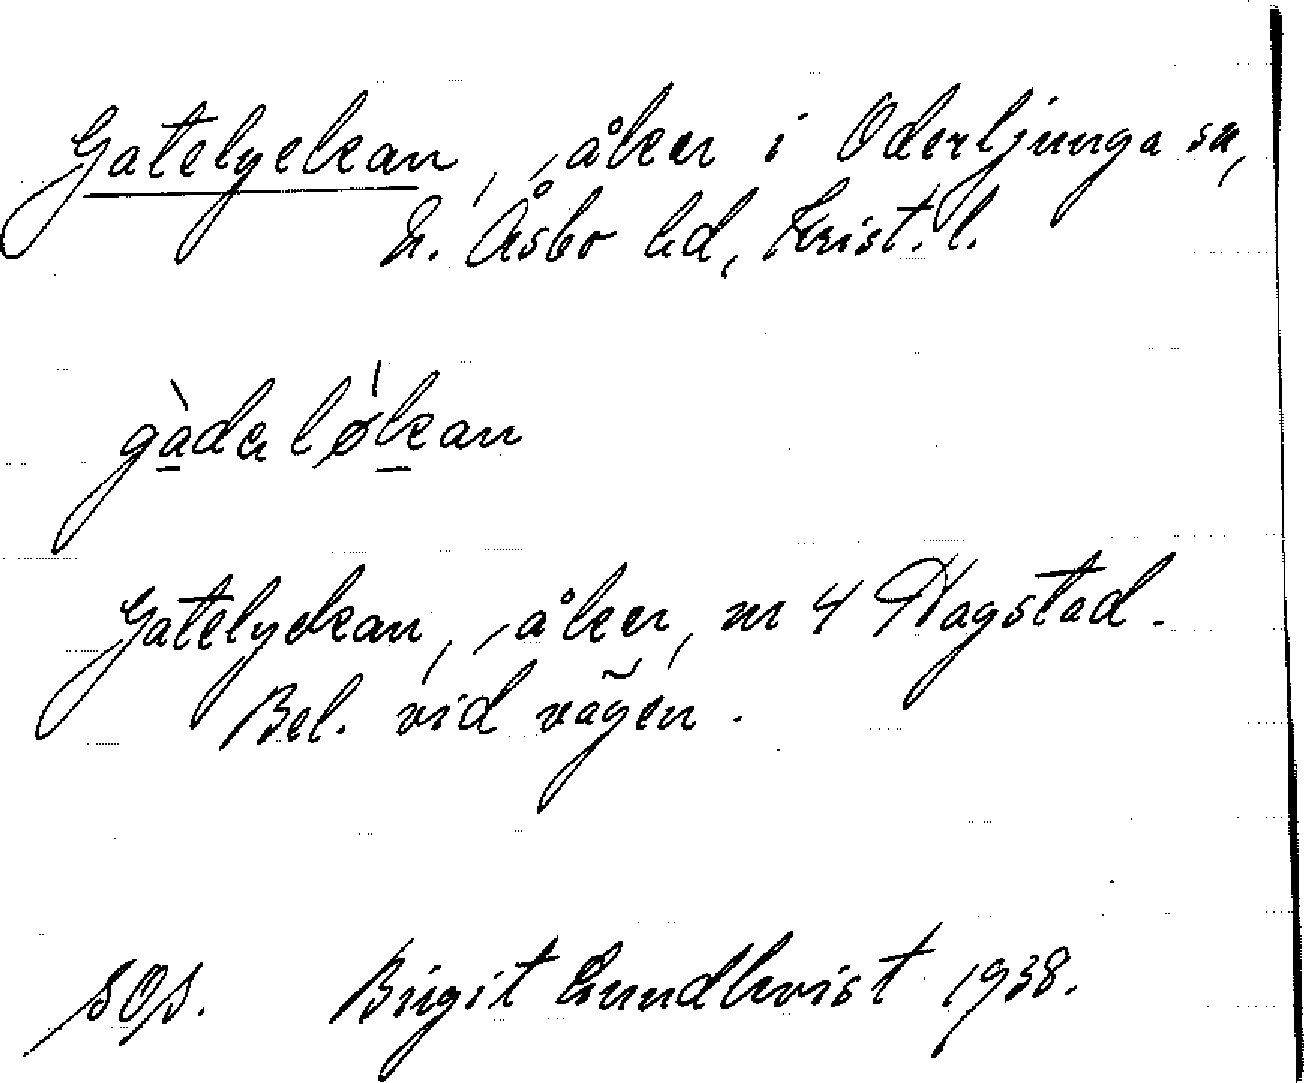 Gatelyckan, åker i Oderljunga sn,
N. Åsbo hd, Krist. l.
gàdeløkan
Gatelyckan, åker, nr 4 Stagstad.
Bel. vid vägen.
SOS. Birgit Lundkvist 1938.